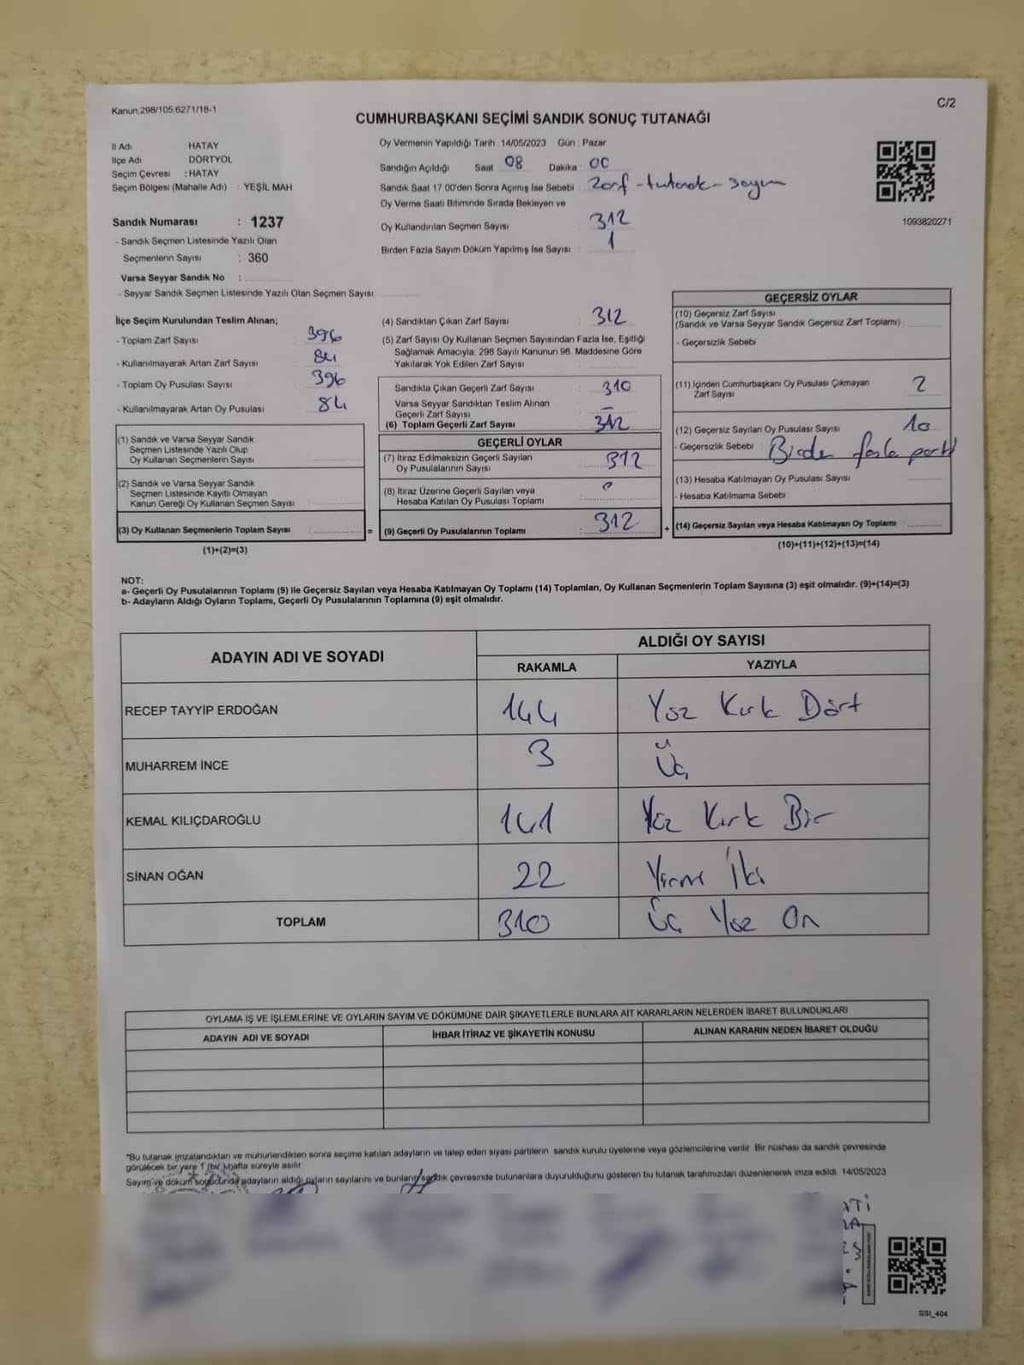 Kanun 298/105,6271/18-1
C/2
CUMHURBAŞKANI SEÇİMİ SANDIK SONUÇ TUTANAĞI
İl Adı HATAY
İlçe Adı DÖRTYOL
Seçim Çevresi : HATAY
Seçim Bölgesi (Mahalle Adı) : YEŞİL MAH
Sandık Numarası : 1237
- Sandık Seçmen Listesinde Yazılı Olan
Seçmenlerin Sayısı : 360
Varsa Seyyar Sandık No :
- Seyyar Sandık Seçmen Listesinde Yazılı Olan Seçmen Sayısı
Oy Vermenin Yapıldığı Tarih 14/05/2023 Gün : Pazar
Sandığın Açıldığı Saat 08 Dakika 00
Sandık Saat 17 00'den Sonra Açılmış İse Sebebi : Zarf - tutanak - sayım
Oy Verme Saati Bitiminde Sırada Bekleyen ve
Oy Kullandırılan Seçmen Sayısı 312
Birden Fazla Sayım Döküm Yapılmış İse Sayısı 1
1093820271
İlçe Seçim Kurulundan Teslim Alınan;
- Toplam Zarf Sayısı 396
- Kullanılmayarak Artan Zarf Sayısı 84
- Toplam Oy Pusulası Sayısı 396
- Kullanılmayarak Artan Oy Pusulası 84
(1) Sandık ve Varsa Seyyar Sandık
Seçmen Listesinde Yazılı Olup
Oy Kullanan Seçmenlerin Sayısı
(2) Sandık ve Varsa Seyyar Sandık
Seçmen Listesinde Kayıtlı Olmayan
Kanun Gereği Oy Kullanan Seçmen Sayısı
(3) Oy Kullanan Seçmenlerin Toplam Sayısı =
(1)+(2)=(3)
(4) Sandıktan Çıkan Zarf Sayısı 312
(5) Zarf Sayısı Oy Kullanan Seçmen Sayısından Fazla İse, Eşitliği
Sağlamak Amacıyla; 298 Sayılı Kanunun 98. Maddesine Göre
Yakılarak Yok Edilen Zarf Sayısı
Sandıkta Çıkan Geçerli Zarf Sayısı 310
Varsa Seyyar Sandıktan Teslim Alınan
Geçerli Zarf Sayısı -
(6) Toplam Geçerli Zarf Sayısı 312
GEÇERLİ OYLAR
(7) İtiraz Edilmeksizin Geçerli Sayılan
Oy Pusulalarının Sayısı 312
(8) İtiraz Üzerine Geçerli Sayılan veya
Hesaba Katılan Oy Pusulası Toplamı 0
(9) Geçerli Oy Pusulalarının Toplamı 312 +
GEÇERSİZ OYLAR
(10) Geçersiz Zarf Sayısı
(Sandık ve Varsa Seyyar Sandık Geçersiz Zarf Toplamı)
- Geçersizlik Sebebi
(11) İçinden Cumhurbaşkanı Oy Pusulası Çıkmayan
Zarf Sayısı 2
(12) Geçersiz Sayılan Oy Pusulası Sayısı 10
- Geçersizlik Sebebi Birden fazla parti
(13) Hesaba Katılmayan Oy Pusulası Sayısı
- Hesaba Katılmama Sebebi
(14) Geçersiz Sayılan veya Hesaba Katılmayan Oy Toplamı
(10)+(11)+(12)+(13)=(14)
NOT:
a- Geçerli Oy Pusulalarının Toplamı (9) ile Geçersiz Sayılan veya Hesaba Katılmayan Oy Toplamı (14) Toplamları, Oy Kullanan Seçmenlerin Toplam Sayısına (3) eşit olmalıdır. (9)+(14)=(3)
b- Adayların Aldığı Oyların Toplamı, Geçerli Oy Pusulalarının Toplamına (9) eşit olmalıdır.
ADAYIN ADI VE SOYADI ALDIĞI OY SAYISI
RAKAMLA YAZIYLA
RECEP TAYYİP ERDOĞAN 144 Yüz Kırk Dört
MUHARREM İNCE 3 Üç
KEMAL KILIÇDAROĞLU 141 Yüz Kırk Bir
SİNAN OĞAN 22 Yirmi İki
TOPLAM 310 Üç Yüz On
OYLAMA İŞ VE İŞLEMLERİNE VE OYLARIN SAYIM VE DÖKÜMÜNE DAİR ŞİKAYETLERLE BUNLARA AİT KARARLARIN NELERDEN İBARET BULUNDUKLARI
ADAYIN ADI VE SOYADI İHBAR İTİRAZ VE ŞİKAYETİN KONUSU ALINAN KARARIN NEDEN İBARET OLDUĞU
"Bu tutanak imzalandıktan ve mühürlendikten sonra seçime katılan adayların ve talep eden siyasi partilerin sandık kurulu üyelerine veya gözlemcilerine verilir. Bir nüshası da sandık çevresinde
görülecek bir yere 1 (bir) hafta süreyle asılır
Sayım ve döküm sonucunda adayların aldığı oyların sayılarını ve bunların sandık çevresinde bulunanlara duyurulduğunu gösteren bu tutanak tarafımızdan düzenlenerek imza edildi. 14/05/2023
SSI_404